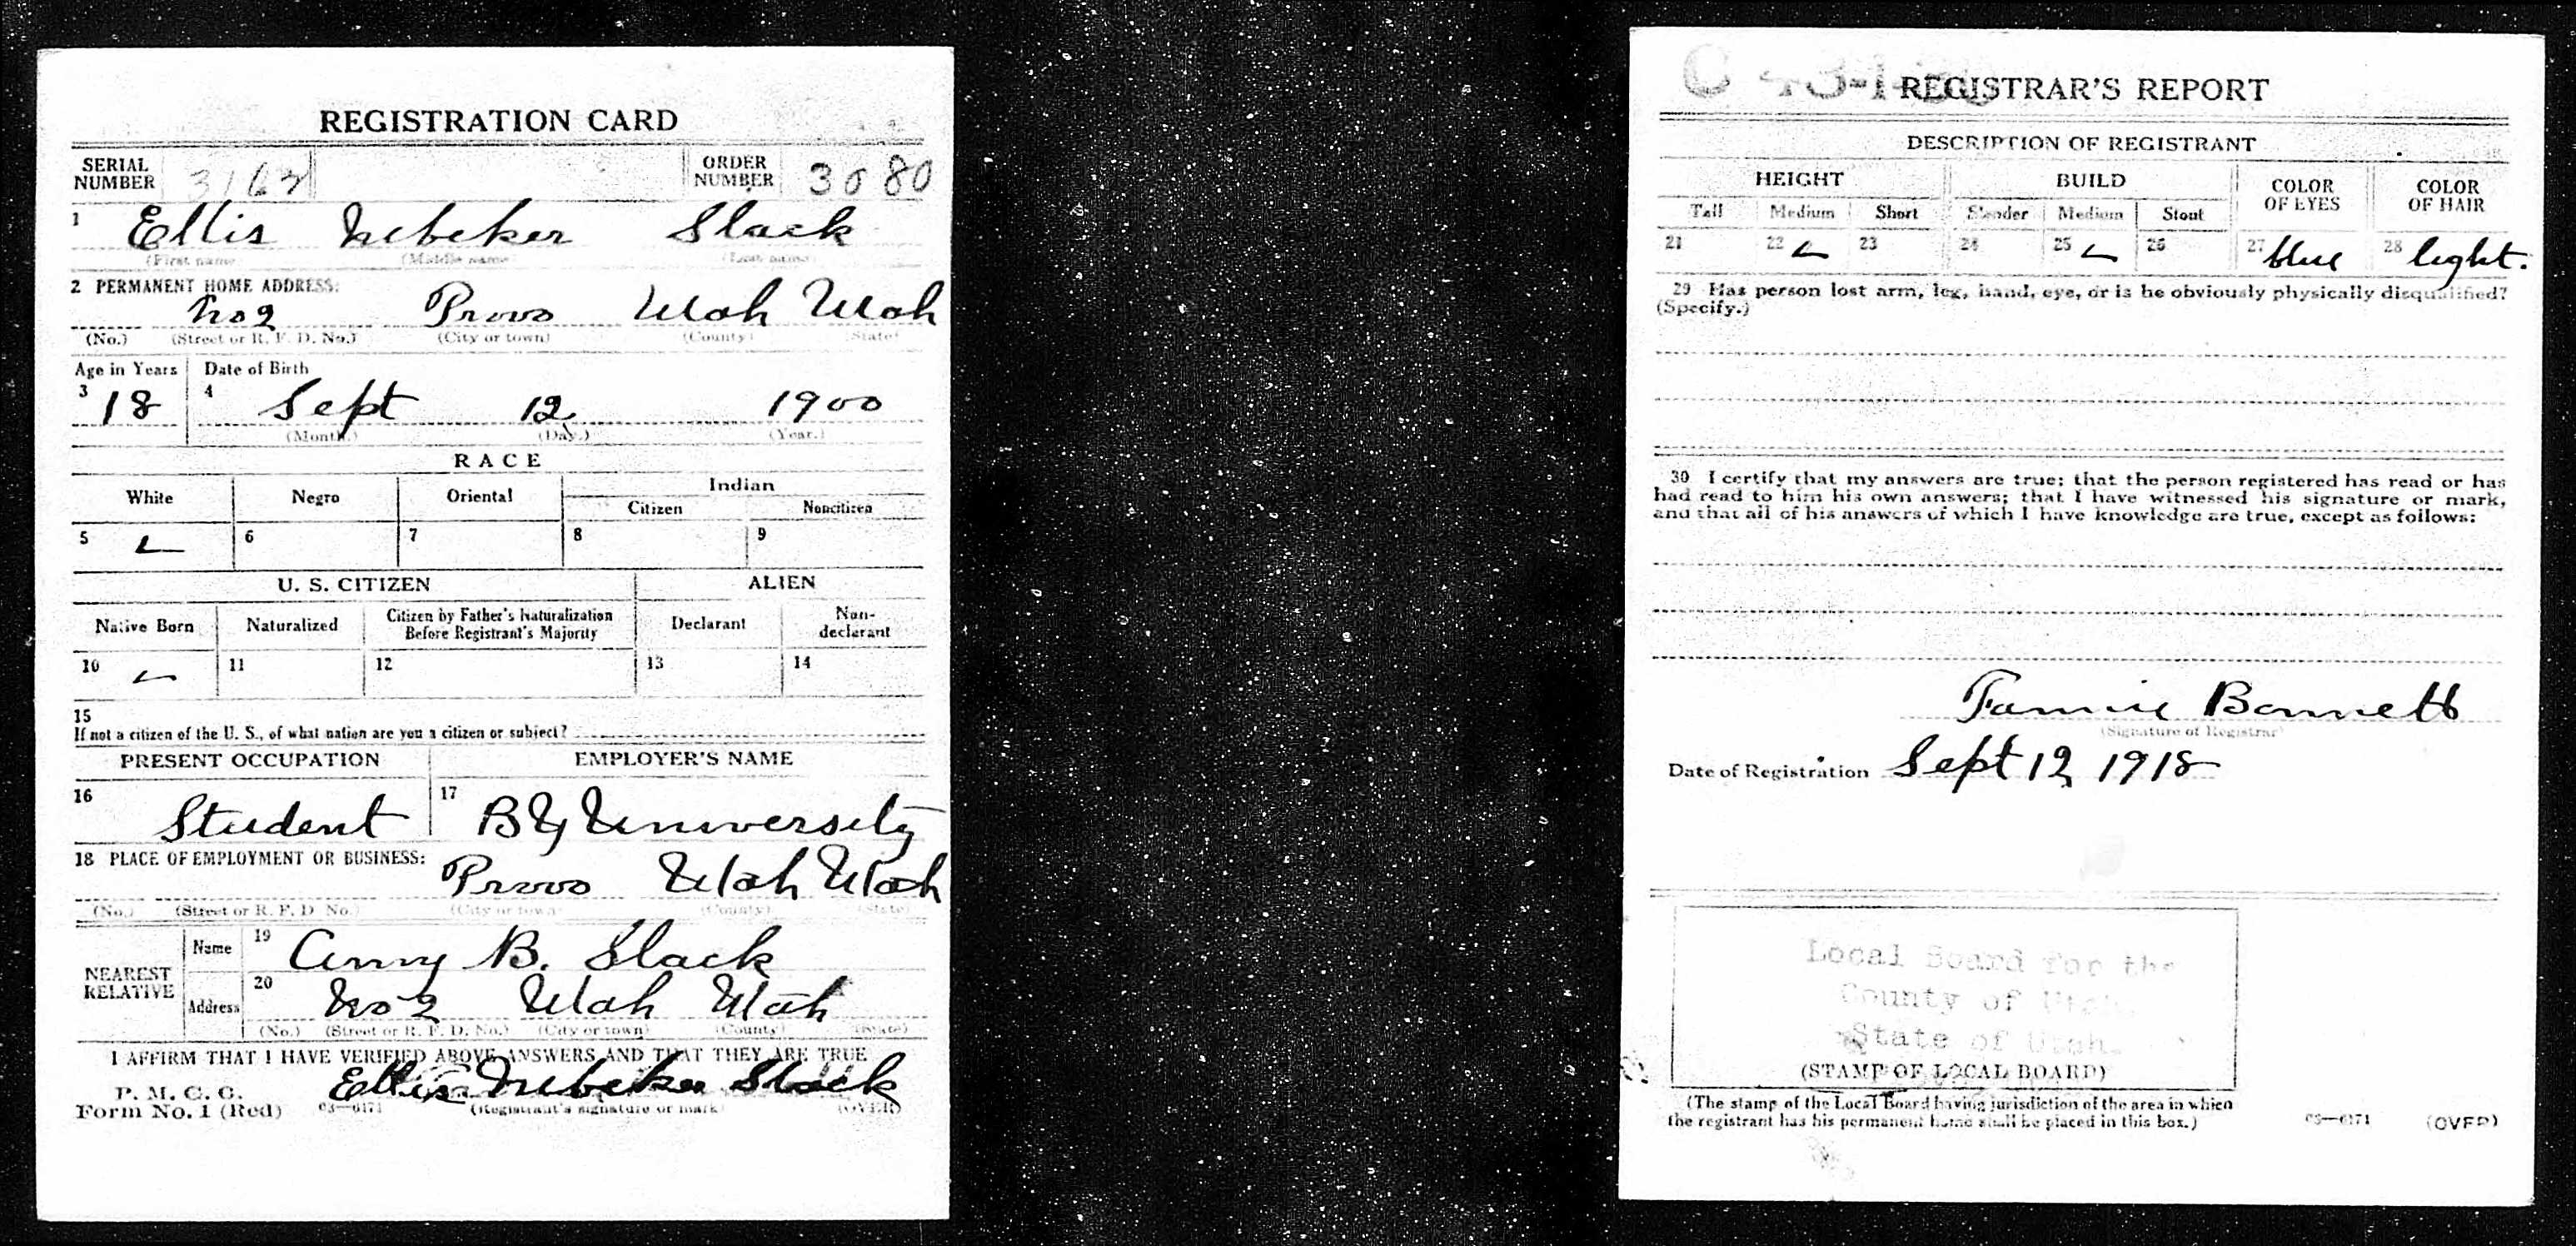 REGISTRATION CARD
SERIAL NUMBER 3162 ORDER NUMBER 3080
1 Ellis Nebeker Slack
(First name) (Middle name) (Last name)
2 PERMANENT HOME ADDRESS:
No 2 Provo Utah Utah
(No.) (Street or R. F. D. No.) (City or town) (County) (State)
Age in Years Date of Birth
3 18 4 Sept 12 1900
(Month.) (Day.) (Year.)
RACE
White Negro Oriental Indian
Citizen Noncitizen
5 6 7 8 9
U. S. CITIZEN ALIEN
Native Born Naturalized Citizen by Father's Naturalization Before Registrant's Majority Declarant Non-declarant
10 11 12 13 14
15
If not a citizen of the U. S., of what nation are you a citizen or subject?
PRESENT OCCUPATION EMPLOYER'S NAME
16 Student 17 BY University
18 PLACE OF EMPLOYMENT OR BUSINESS:
Provo Utah Utah
(No.) (Street or R. F. D. No.) (City or town) (County) (State)
NEAREST RELATIVE
Name 19 Amy B. Slack
Address 20 No 2 Utah Utah
(No.) (Street or R. F. D. No.) (City or town) (County) (State)
I AFFIRM THAT I HAVE VERIFIED ABOVE ANSWERS AND THAT THEY ARE TRUE
P. M. G. O.
Form No. 1 (Red) 03—6171 Ellis Nebeker Slack
(Registrant's signature or mark) (OVER)
REGISTRAR'S REPORT
DESCRIPTION OF REGISTRANT
HEIGHT BUILD COLOR OF EYES COLOR OF HAIR
Tall Medium Short Slender Medium Stout
21 22 23 24 25 26 27 blue 28 light.
29 Has person lost arm, leg, hand, eye, or is he obviously physically disqualified?
(Specify.)
30 I certify that my answers are true; that the person registered has read or has
had read to him his own answers; that I have witnessed his signature or mark,
and that all of his answers of which I have knowledge are true, except as follows:
(Signature of Registrar)
Date of Registration Sept 12 1918
Local Board for the
County of Utah
State of Utah.
(STAMP OF LOCAL BOARD)
(The stamp of the Local Board having jurisdiction of the area in which
the registrant has his permanent home shall be placed in this box.)
03—6171 (OVER)